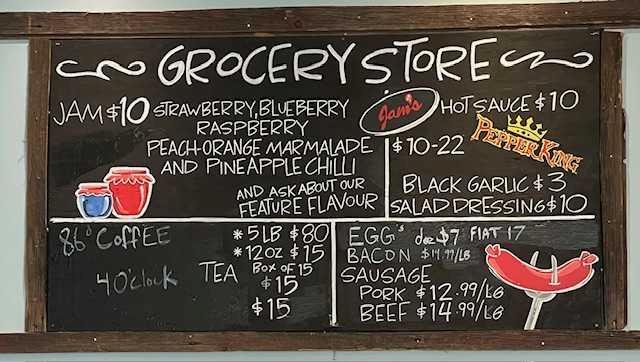 GROCERY STORE
JAM $10 STRAWBERRY, BLUEBERRY
RASPBERRY
PEACH-ORANGE MARMALADE
AND PINEAPPLE CHILLI
AND ASK ABOUT OUR
FEATURE FLAVOUR
Jam's HOT SAUCE $10
$10-22 PEPPER KING
BLACK GARLIC $3
SALAD DRESSING $10
86° COFFEE * 5 LB $80
* 12 OZ $15
4 O'clock TEA BOX OF 15
$15
$15
EGG's doz $7 FLAT 17
BACON $14.99/LB
SAUSAGE
PORK $12.99/LB
BEEF $14.99/LB